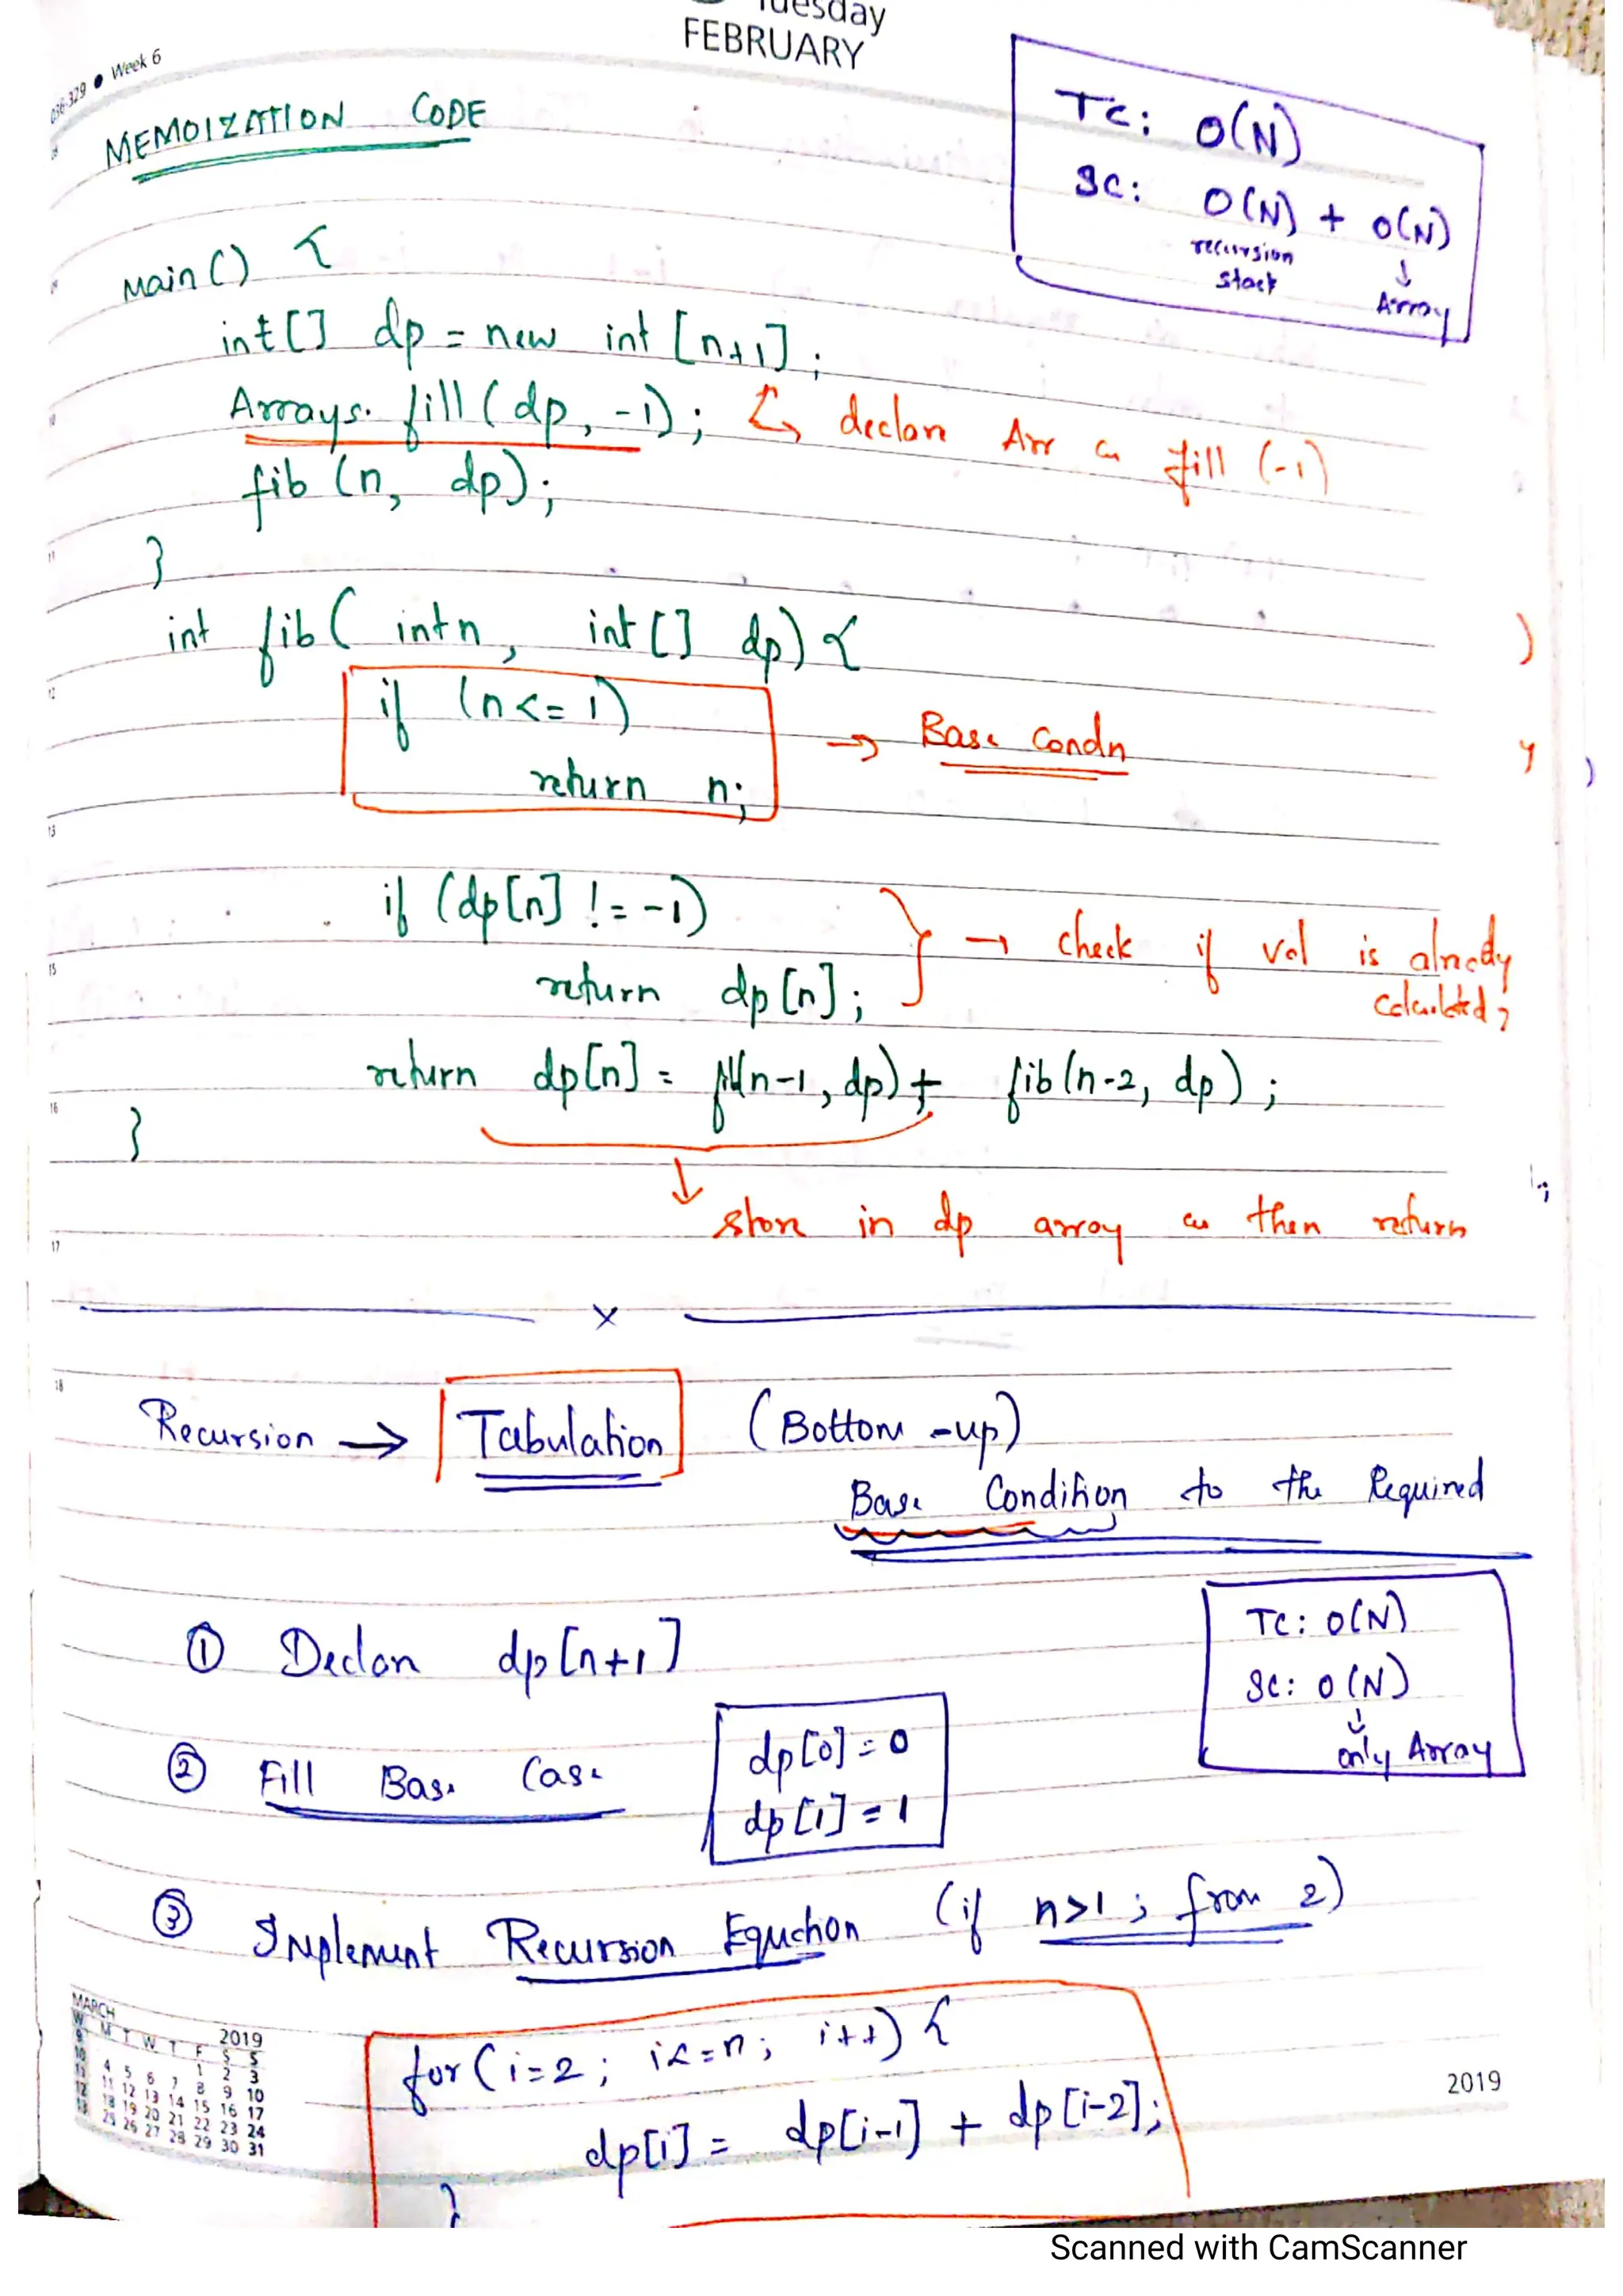 Tuesday
FEBRUARY
036-329 • Week 6
MEMOIZATION CODE
TC: O(N)
SC: O(N) + O(N)
recursion stack
↓
Array
Main() {
int[] dp = new int [n+1];
Arrays.fill(dp, -1); ↳ declare Arr & fill (-1)
fib (n, dp);
}
int fib( int n, int[] dp) {
if (n <= 1)
return n;
→ Base Condn
if (dp[n] != -1)
return dp[n];
→ check if val is already
calculated;
return dp[n] = fib(n-1, dp) + fib(n-2, dp);
}
↓ store in dp array & then return
x
Recursion → Tabulation (Bottom-up)
Base Condition to the Required
① Declare dp[n+1]
TC: O(N)
SC: O(N)
↓
only Array
② Fill Base Case
dp[0] = 0
dp[1] = 1
③ Implement Recursion Equation (if n>1; from 2)
for(i=2; i<=n; i++) {
dp[i] = dp[i-1] + dp[i-2];
}
MARCH 2019
W M T W T F S S
1 2 3
10 4 5 6 7 8 9 10
11 11 12 13 14 15 16 17
12 18 19 20 21 22 23 24
13 25 26 27 28 29 30 31
2019
Scanned with CamScanner